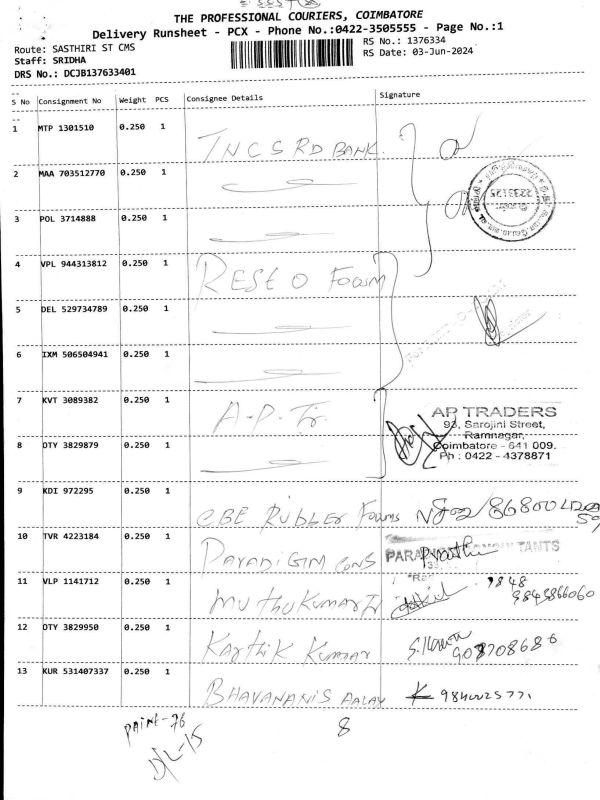 THE PROFESSIONAL COURIERS, COIMBATORE
Delivery Runsheet - PCX - Phone No.:0422-3505555 - Page No.:1
Route: SASTHIRI ST CMS
RS No.: 1376334
Staff: SRIDHA
RS Date: 03-Jun-2024
DRS No.: DCJB137633401
S No Consignment No Weight PCS Consignee Details Signature
1 MTP 1301510 0.250 1 TNCSRD BANK
2 MAA 703512770 0.250 1
3 POL 3714888 0.250 1
2233125
4 VPL 944313812 0.250 1 REST O Foam
5 DEL 529734789 0.250 1
6 IXM 506504941 0.250 1
7 KVT 3089382 0.250 1 A-P-Tr.
AP TRADERS
93, Sarojini Street,
Ramnagar,
Coimbatore - 641 009.
Ph : 0422 - 4378871
8 OTY 3829879 0.250 1
9 KDI 972295 0.250 1 CBE Rubber Foams
10 TVR 4223184 0.250 1 PARADIGIM CONS
11 VLP 1141712 0.250 1 Muthukumar Tr
9843866060
12 OTY 3829950 0.250 1 Karthik Kumar
13 KUR 531407337 0.250 1 BHAVANANIS AALAY
9840025771
PAINT-76
D/L-15
8